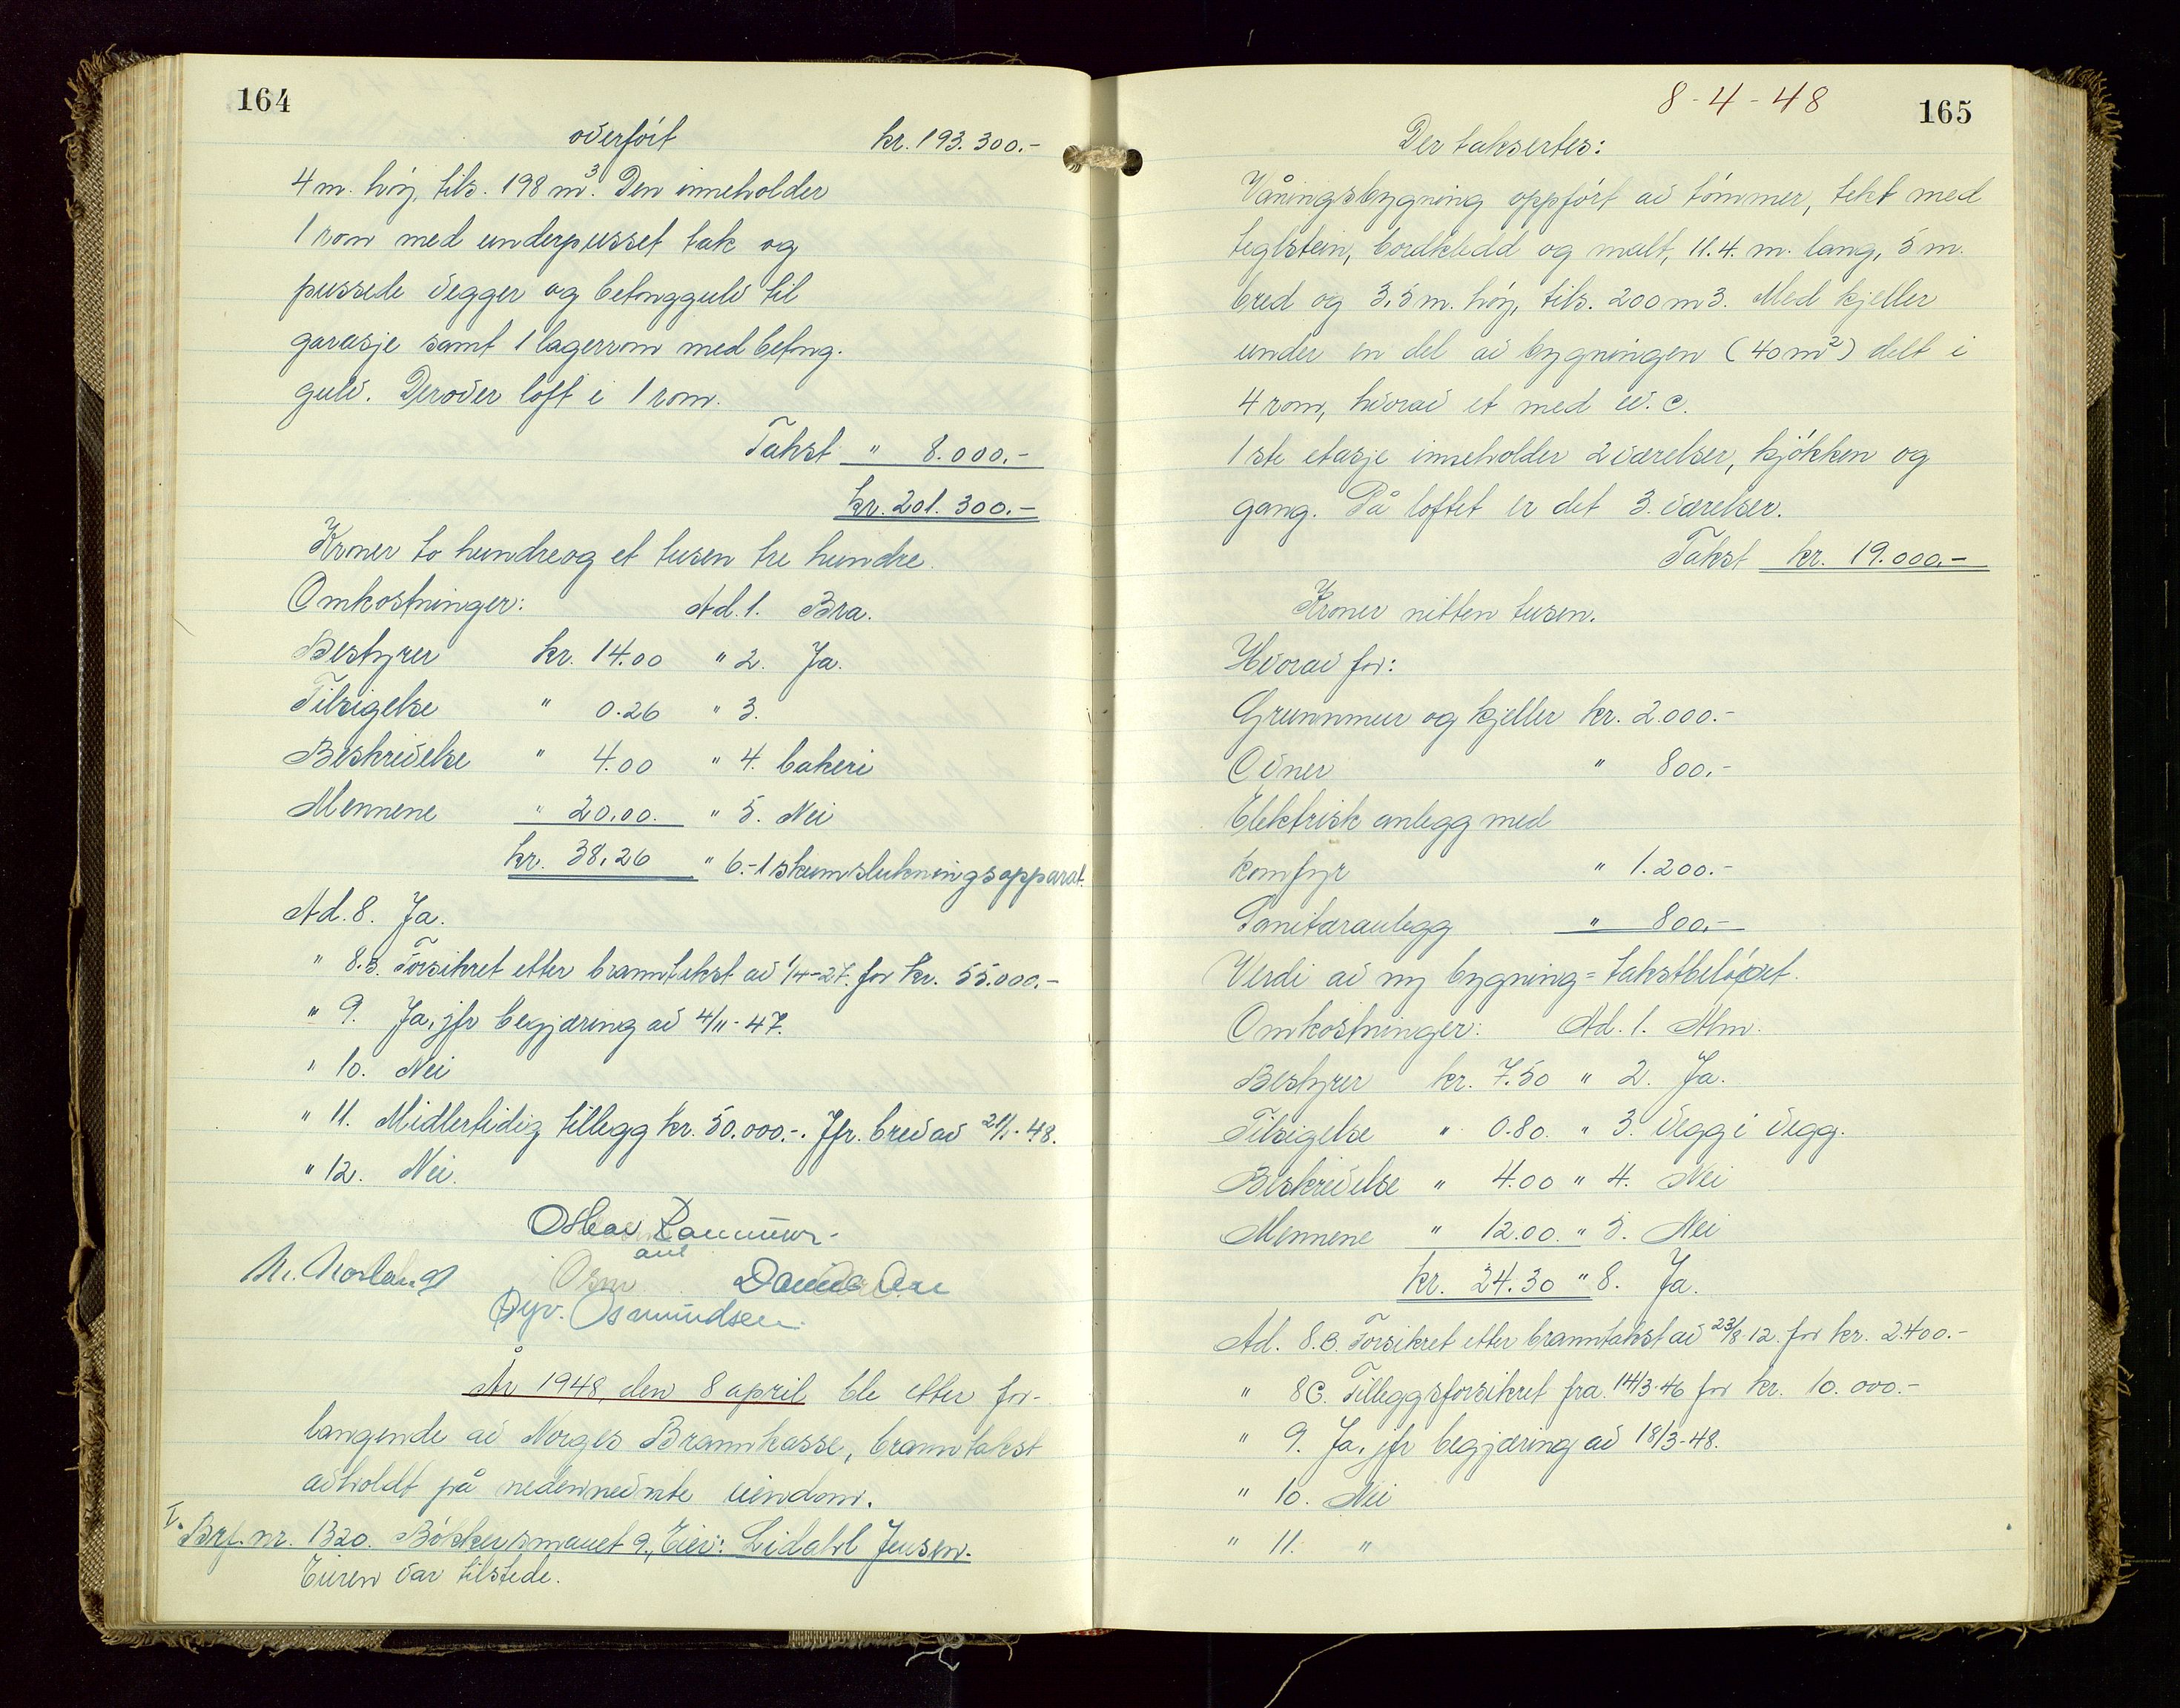 164
overført kr. 193.300.-
4 m. høy, tils. 198 m³. Den inneholder
1 rom med underpusset tak og
pussede vegger og betonggulv til
garasje samt 1 lagerrom med betong-
gulv. Derover loft i 1 rom.
Takst " 8.000.-
kr. 201.300.-
Kroner to hundreog et tusen tre hundre.
Omkostninger: Ad. 1. Bra.
Bestyrer kr. 14.00 " 2. Ja.
Tilsigelse " 0.26 " 3.
Beskrivelse " 4.00 " 4. bakeri
Mennene " 20.00. " 5. Nei
kr. 38.26 " 6.-1 skumslukningsapparat.
Ad. 8. Ja.
" 8.B. Forsikret etter branntakst av 1/4-27. for kr. 55.000.-
" 9. Ja, jfr begjæring av 4/11-47.
" 10. Nei
" 11. Midlertidig tillegg kr. 50.000.-. Jfr. brev av 21/1-48.
" 12. Nei.
Osmundsen
År 1948, den 8 april ble etter for-
langende av Norges Brannkasse, branntakst
avholdt på nedennevnte eiendom.
I. Brf. nr. 1320. Bøkkersmauet 9., Eier: Lidahl Jensen.
Eieren var tilstede.
8-4-48 165
Der taksertes:
Våningsbygning oppført av tømmer, tekt med
teglstein, bordkledd og malt, 11.4. m. lang, 5 m.
bred og 3,5 m. høy, tils. 200 m3. Med kjeller
under en del av bygningen (40 m²) delt i
4 rom, hvorav et med w.c.
1ste etasje inneholder 2 værelser, kjøkken og
gang. På loftet er det 3. værelser.
Takst kr. 19.000.-
Kroner nitten tusen.
Hvorav for:
Grunnmur og kjeller kr. 2.000.-
Ovner " 800.-
Elektrisk anlegg med
komfyr " 1.200.-
Sanitæranlegg " 800.-
Verdi av ny bygning = takstbeløpet.
Omkostninger: Ad. 1. Alm.
Bestyrer kr. 7.50 " 2. Ja.
Tilsigelse " 0.80. " 3. Vegg i Vegg.
Beskrivelse " 4.00 " 4. Nei
Mennene " 12.00. " 5. Nei
kr. 24.30 " 8. Ja.
Ad. 8.B. Forsikret etter branntakst av 23/8-12. for kr. 2.400.-
" 8C. Tilleggsforsikret fra 14/3-46 for kr. 10.000.-
" 9. Ja, jfr begjæring av 18/3-48.
" 10. Nei
" 11. "